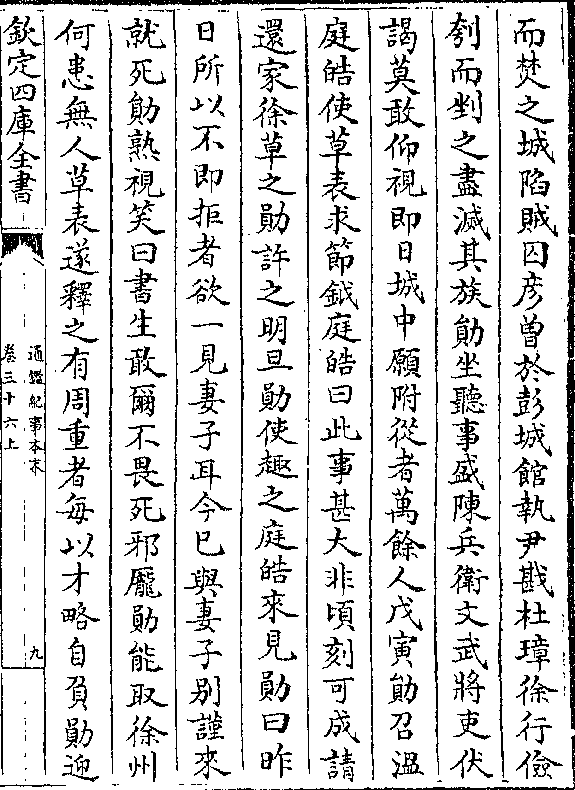 而焚之城陷賊囚彦曾於彭城館執尹戡杜璋徐行儉
刳而剉之盡滅其族勛坐聽事盛陳兵衛文武將吏伏
謁莫敢仰視即日城中願附從者萬餘人戊寅勛召溫
庭皓使草表求節鉞庭皓曰此事甚大非頃刻可成請
還家徐草之勛許之明旦勛使趣之庭皓來見勛曰昨
日所以不即拒者欲一見妻子耳今已與妻子别謹來
就死勛熟視笑曰書生敢爾不畏死邪龎勛能取徐州
何患無人草表遂釋之有周重者每以才略自負勛迎
欽定四庫全書
通鑑紀事本末
卷三十六上
九